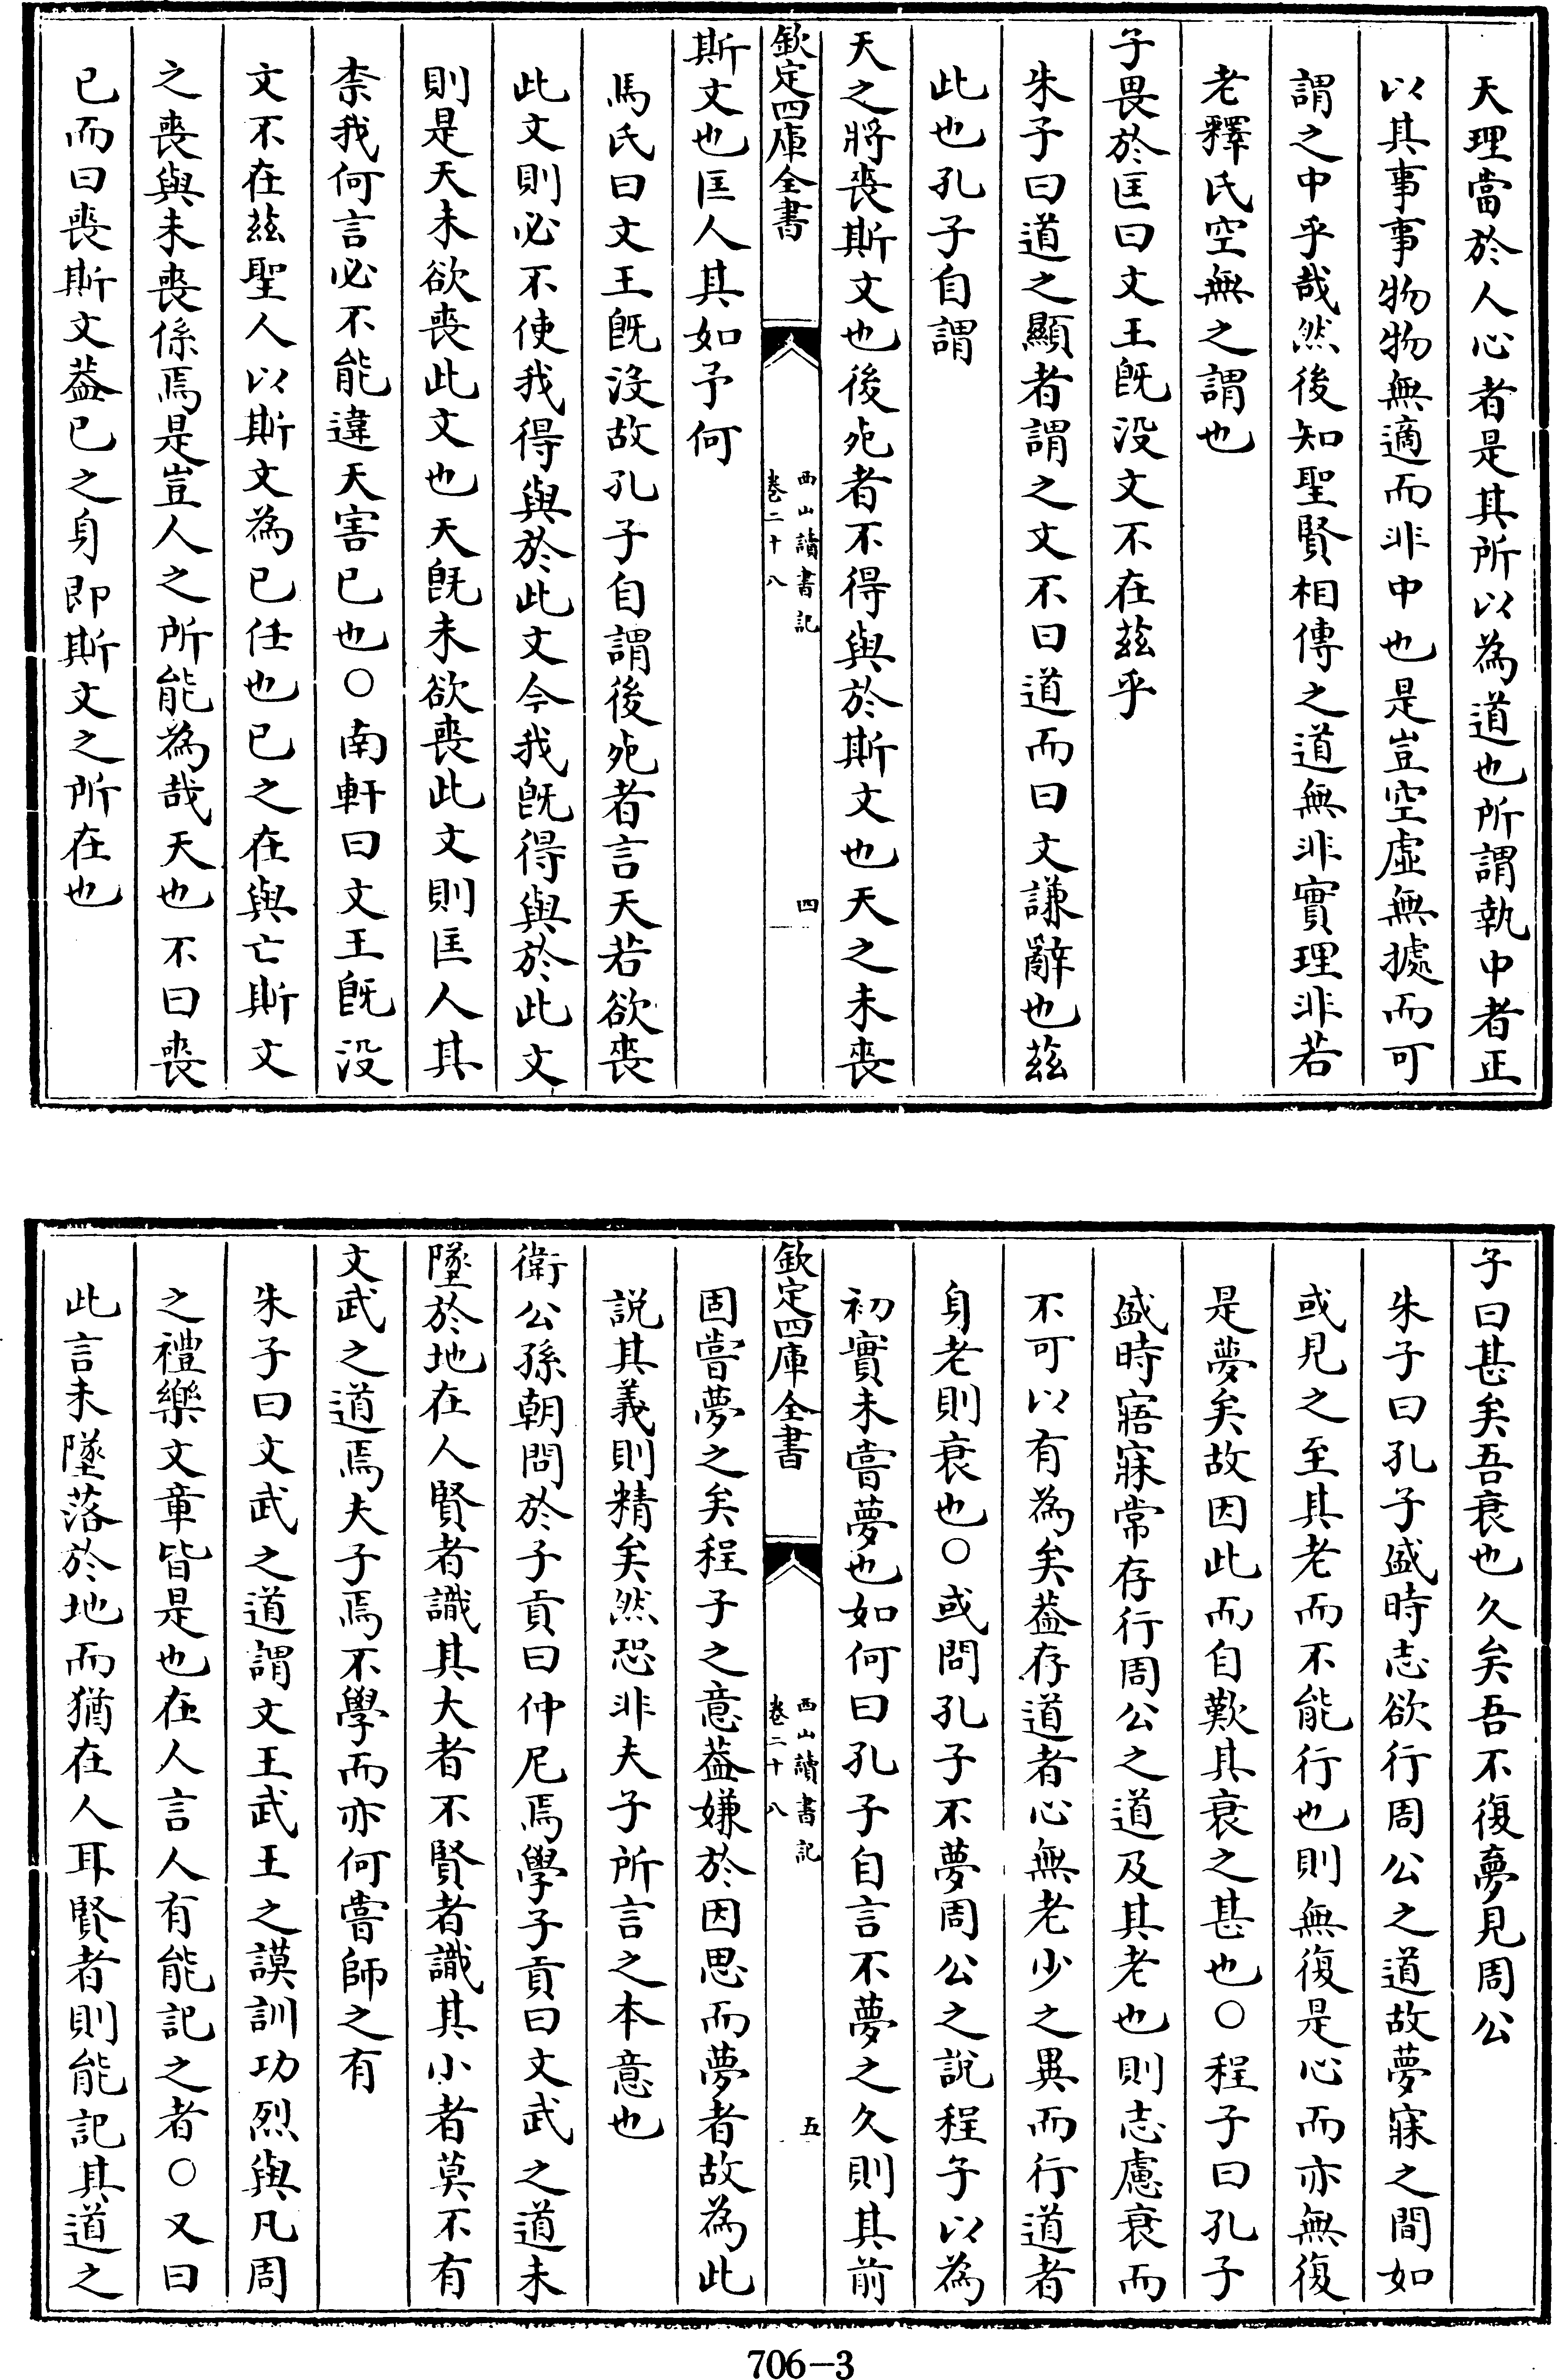 天理當於人心者是其所以為道也所謂執中者正
以其事事物物無適而非中也是豈空虛無據而可
謂之中乎哉然後知聖賢相傳之道無非實理非若
老釋氏空無之謂也
子畏於匡曰文王既没文不在茲乎
朱子曰道之顯者謂之文不曰道而曰文謙辭也茲
此也孔子自謂
天之將喪斯文也後死者不得與於斯文也天之未喪
欽定四庫全書
西山讀書記
卷二十八
四
斯文也匡人其如予何
馬氏曰文王既没故孔子自謂後死者言天若欲喪
此文則必不使我得與於此文今我既得與於此文
則是天未欲喪此文也天既未欲喪此文則匡人其
柰我何言必不能違天害已也○南軒曰文王既没
文不在茲聖人以斯文為已任也已之在與亡斯文
之喪與未喪係焉是豈人之所能為哉天也不曰喪
已而曰喪斯文葢已之身即斯文之所在也
子曰甚矣吾衰也久矣吾不復夢見周公
朱子曰孔子盛時志欲行周公之道故夢寐之間如
或見之至其老而不能行也則無復是心而亦無復
是夢矣故因此而自歎其衰之甚也○程子曰孔子
盛時寤寐常存行周公之道及其老也則志慮衰而
不可以有為矣葢存道者心無老少之異而行道者
身老則衰也○或問孔子不夢周公之說程子以為
初實未嘗夢也如何曰孔子自言不夢之久則其前
欽定四庫全書
西山讀書記
卷二十八
五
固嘗夢之矣程子之意葢嫌於因思而夢者故為此
説其義則精矣然恐非夫子所言之本意也
衛公孫朝問於子貢曰仲尼焉學子貢曰文武之道未
墜於地在人賢者識其大者不賢者識其小者莫不有
文武之道焉夫子焉不學而亦何嘗師之有
朱子曰文武之道謂文王武王之謨訓功烈與凡周
之禮樂文章皆是也在人言人有能記之者○又曰
此言未墜落於地而猶在人耳賢者則能記其道之
706-3